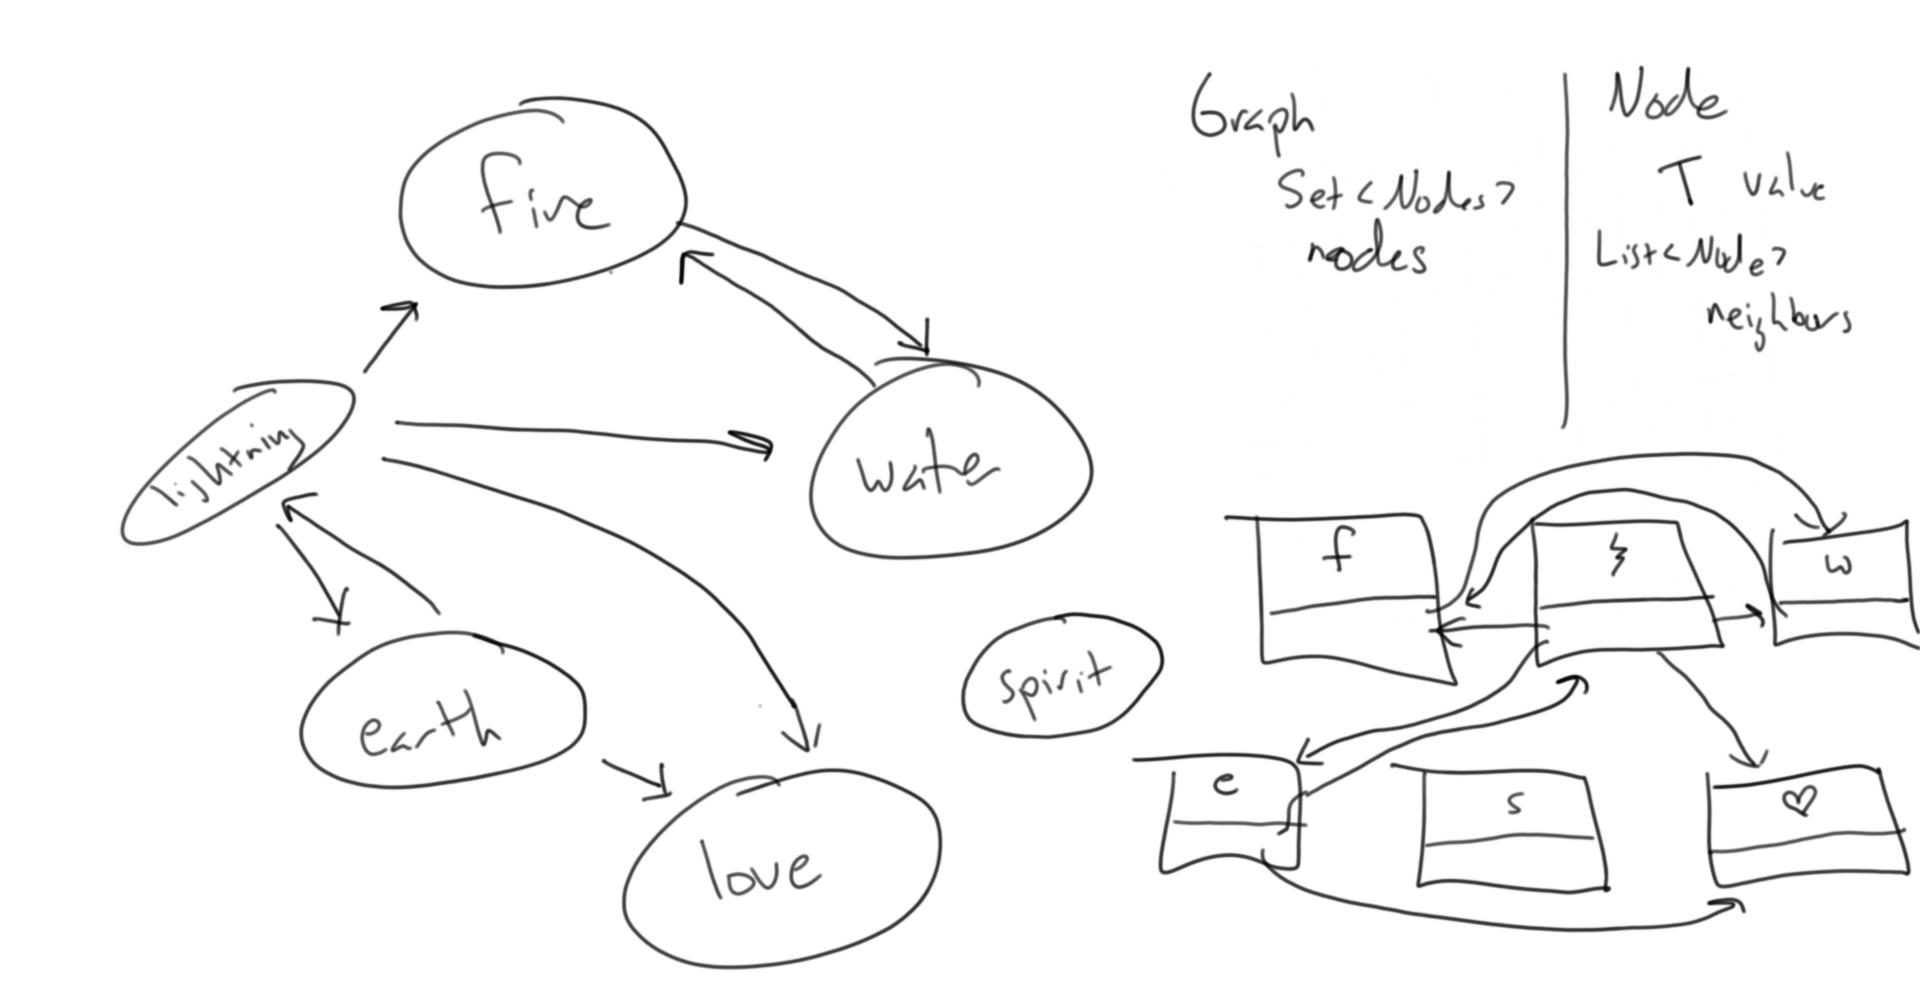 fire
lightning
water
earth
spirit
love
Graph
Set<Nodes>
nodes
Node
T value
List<Node>
neighbors
f
w
e
s